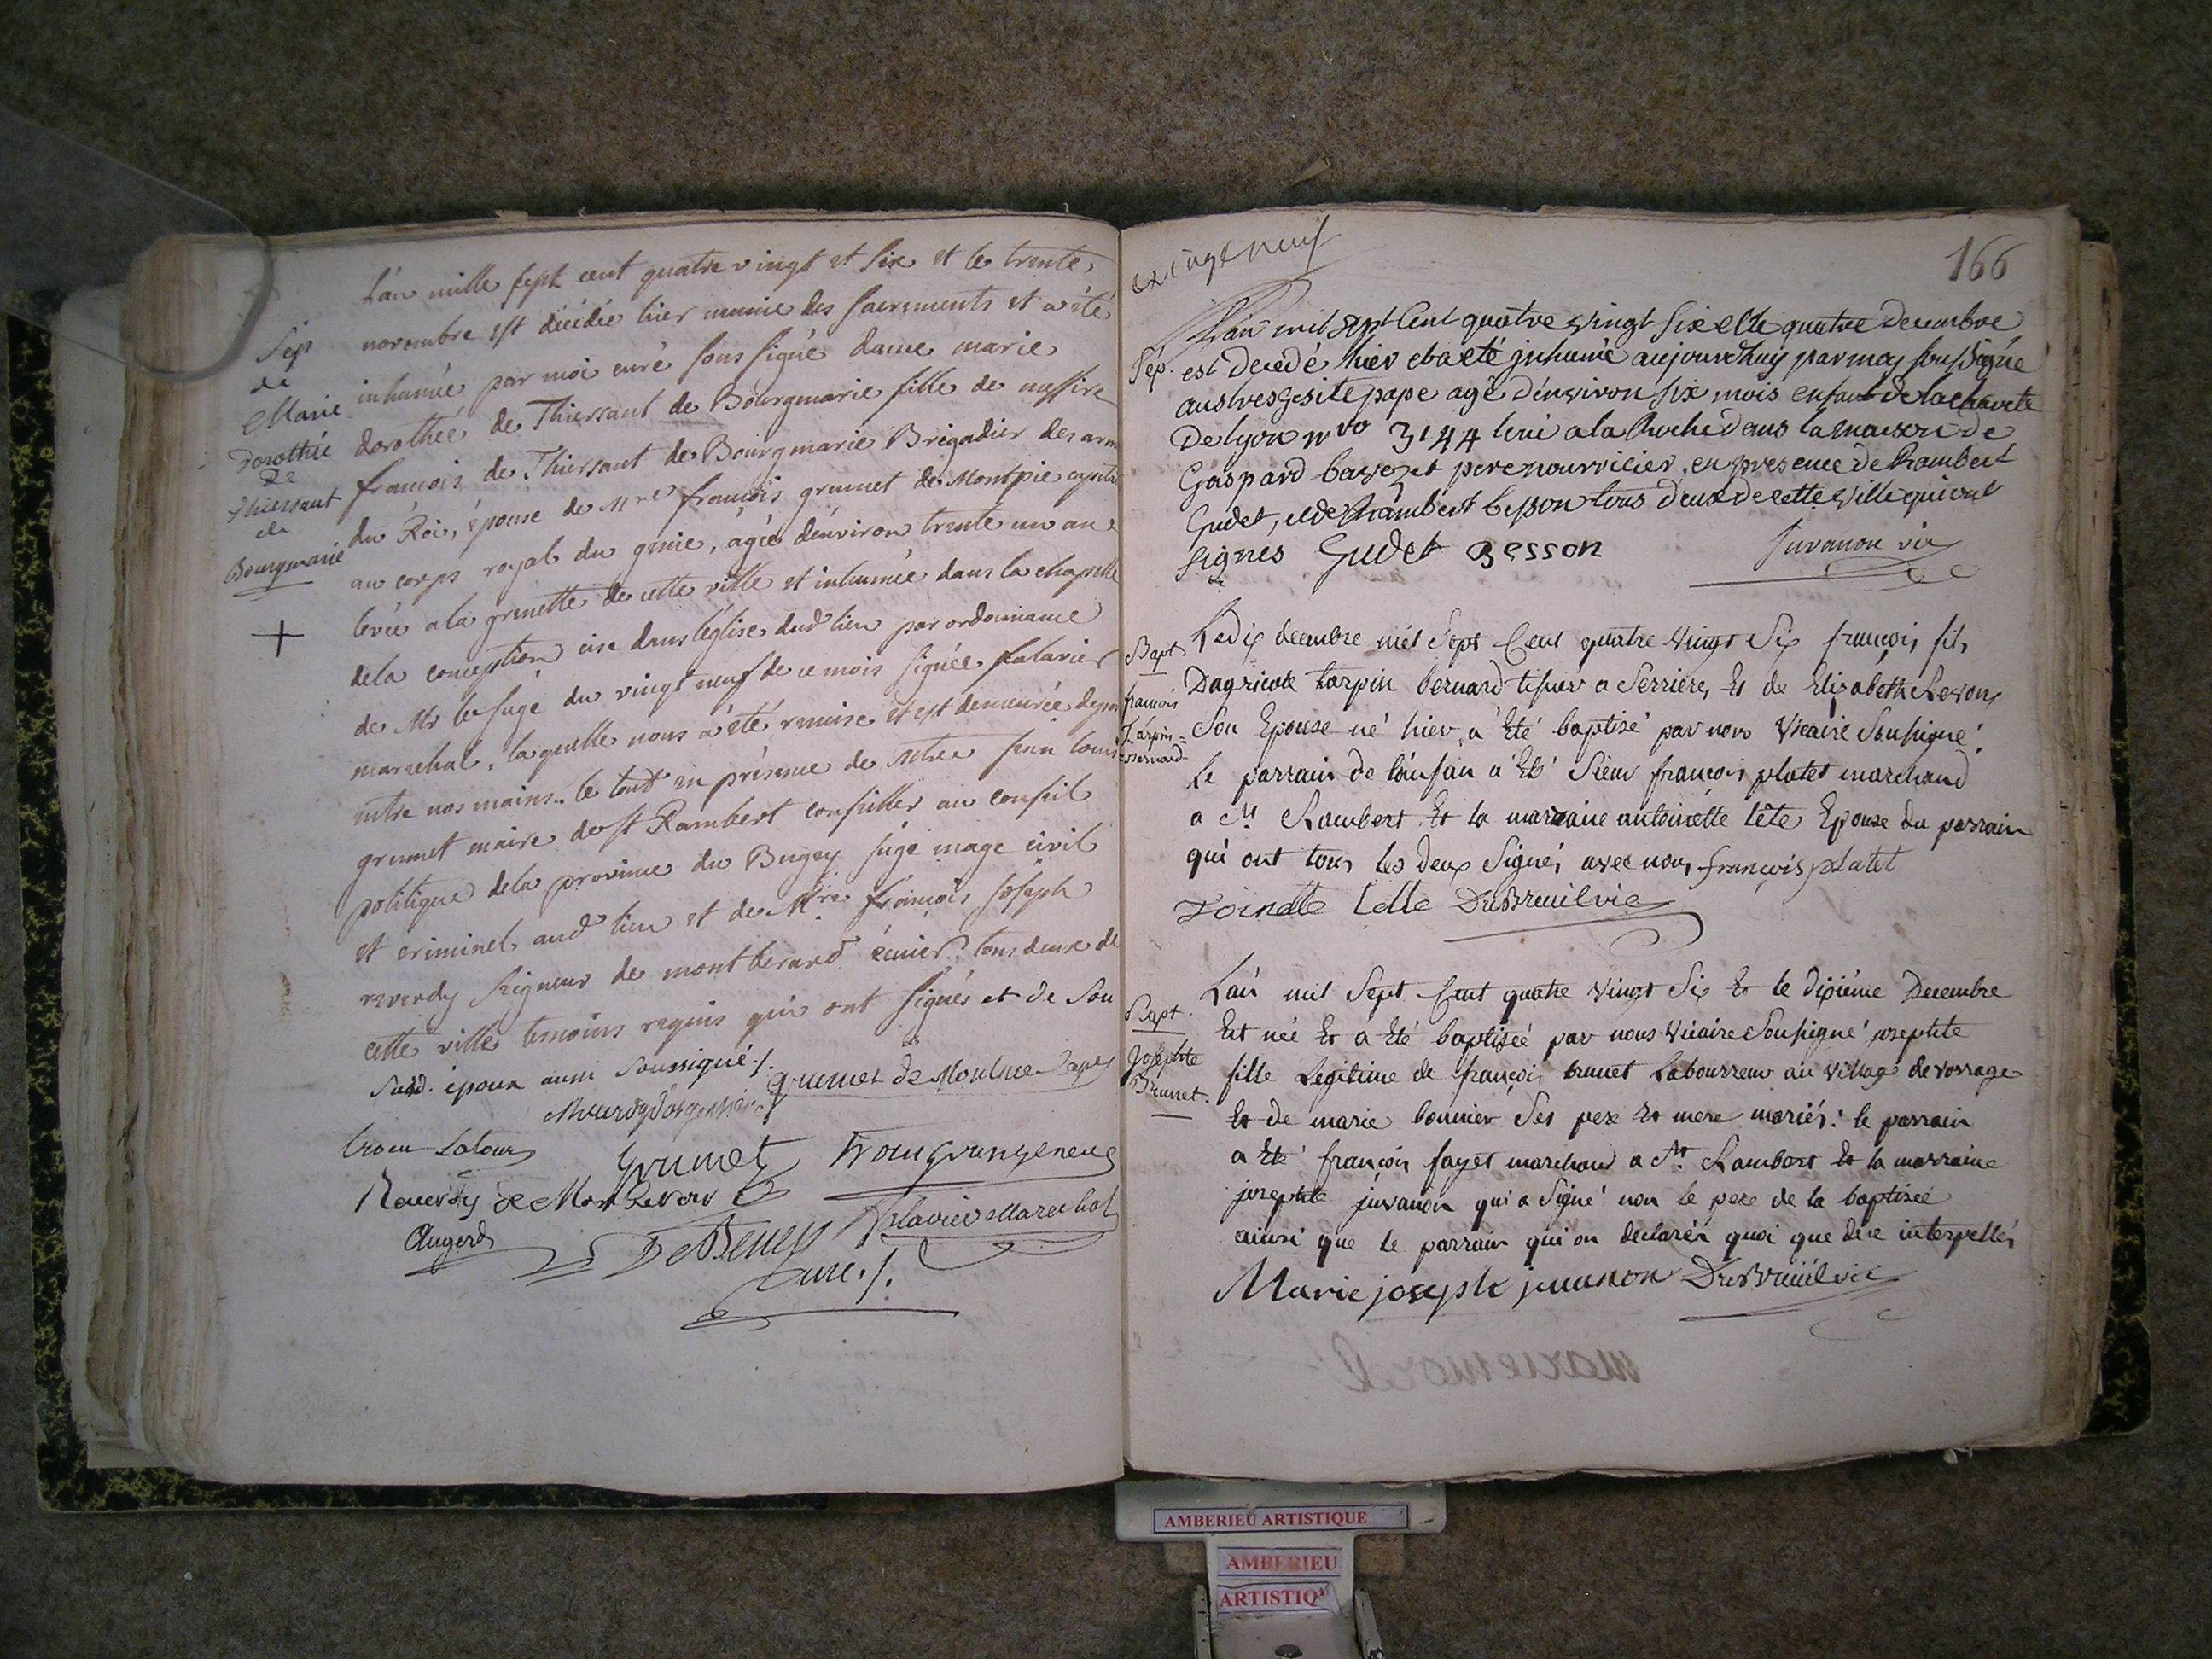 L'an mille sept cent quatre vingt et six et le trente
novembre est décédée hier munie des sacrements et a été
inhumée par moi curé soussigné dame marie
dorothée de Thiersant de Bourgmarie fille de messire
francois de Thiersant de Bourgmarie Brigadier des arm
du Roi, épouse de Mre françois grumet de Montpie
au corps royal du genie, agée d'environ trente un an
levée a la grenette de cette ville et inhumée dans la chapelle
de la conception cise dans l'église dud lieu par ordonnance
de Mr le juge du vingt neuf de ce mois signée
marechal, laquelle nous a été remise et est demeurée
entre nos mains. le tout en présence de Mtre jean louis
grumet maire de st Rambert conseiller au conseil
politique de la province du Bugey juge mage civil
et criminel aud lieu et de Mtre françois joseph
reverdy seigneur de montberard écuier tous deux de
cette ville temoins requis qui ont signés et de son
susd. epoux aussi soussigné ./.
Sep
de
Marie
dorothée
de
Thiersant
de
Bourgmarie
grumet
Reverdy de
Augerd
curé ./.
166
L'an mil sept cent quatre vingt six et le quatre decembre
est decedé hier et a eté inhumé aujourdhuy par moy soussigné
pape agé d'environ six mois enfant de la charité
De lyon nro 3144 a la Roche dans la maison de
Gaspard pere nourricier, en presence de Rambert
Gudet, et de Rambert besson tous deux de cette ville qui ont
signés Gudet Besson Juvanon vic
Sép.
Le dix decembre mil sept cent quatre vingt six françois fils
D'agricole tarpin bernard tissier a Serriere, Et de Elizabeth
Son Epouse né hier, a Eté baptisé par nous Vicaire Soussigné.
Le parrain de l'enfan a Eté Sieur françois platet marchand
a St Rambert Et la marraine antoinette tête Epouse du parrain
qui ont tous les deux Signés avec nous françois platet
Toinette tette Dubreuil vic
Bapt
francois
Tarpin=
Bernard
L'an mil Sept Cent quatre Vingt Six Et le dixiéme Decembre
Est née Et a Eté baptisée par nous Vicaire Soussigné josephte
fille Legitime de françois brunet Laboureur au village de vorrage
Et de marie bonnier Ses pere Et mere mariés: le parrain
a Eté françois fayet marchand a St Rambert Et la marraine
josephte juvanon qui a Signé non le pere de la baptisée
ainsi que le parrain qui on declarés quoi que de ce interpellés
Marie joseph juuanon Dubreüil vic
Bapt.
Josephte
Brunet.
AMBERIEU ARTISTIQUE
AMBERIEU
ARTISTIQ